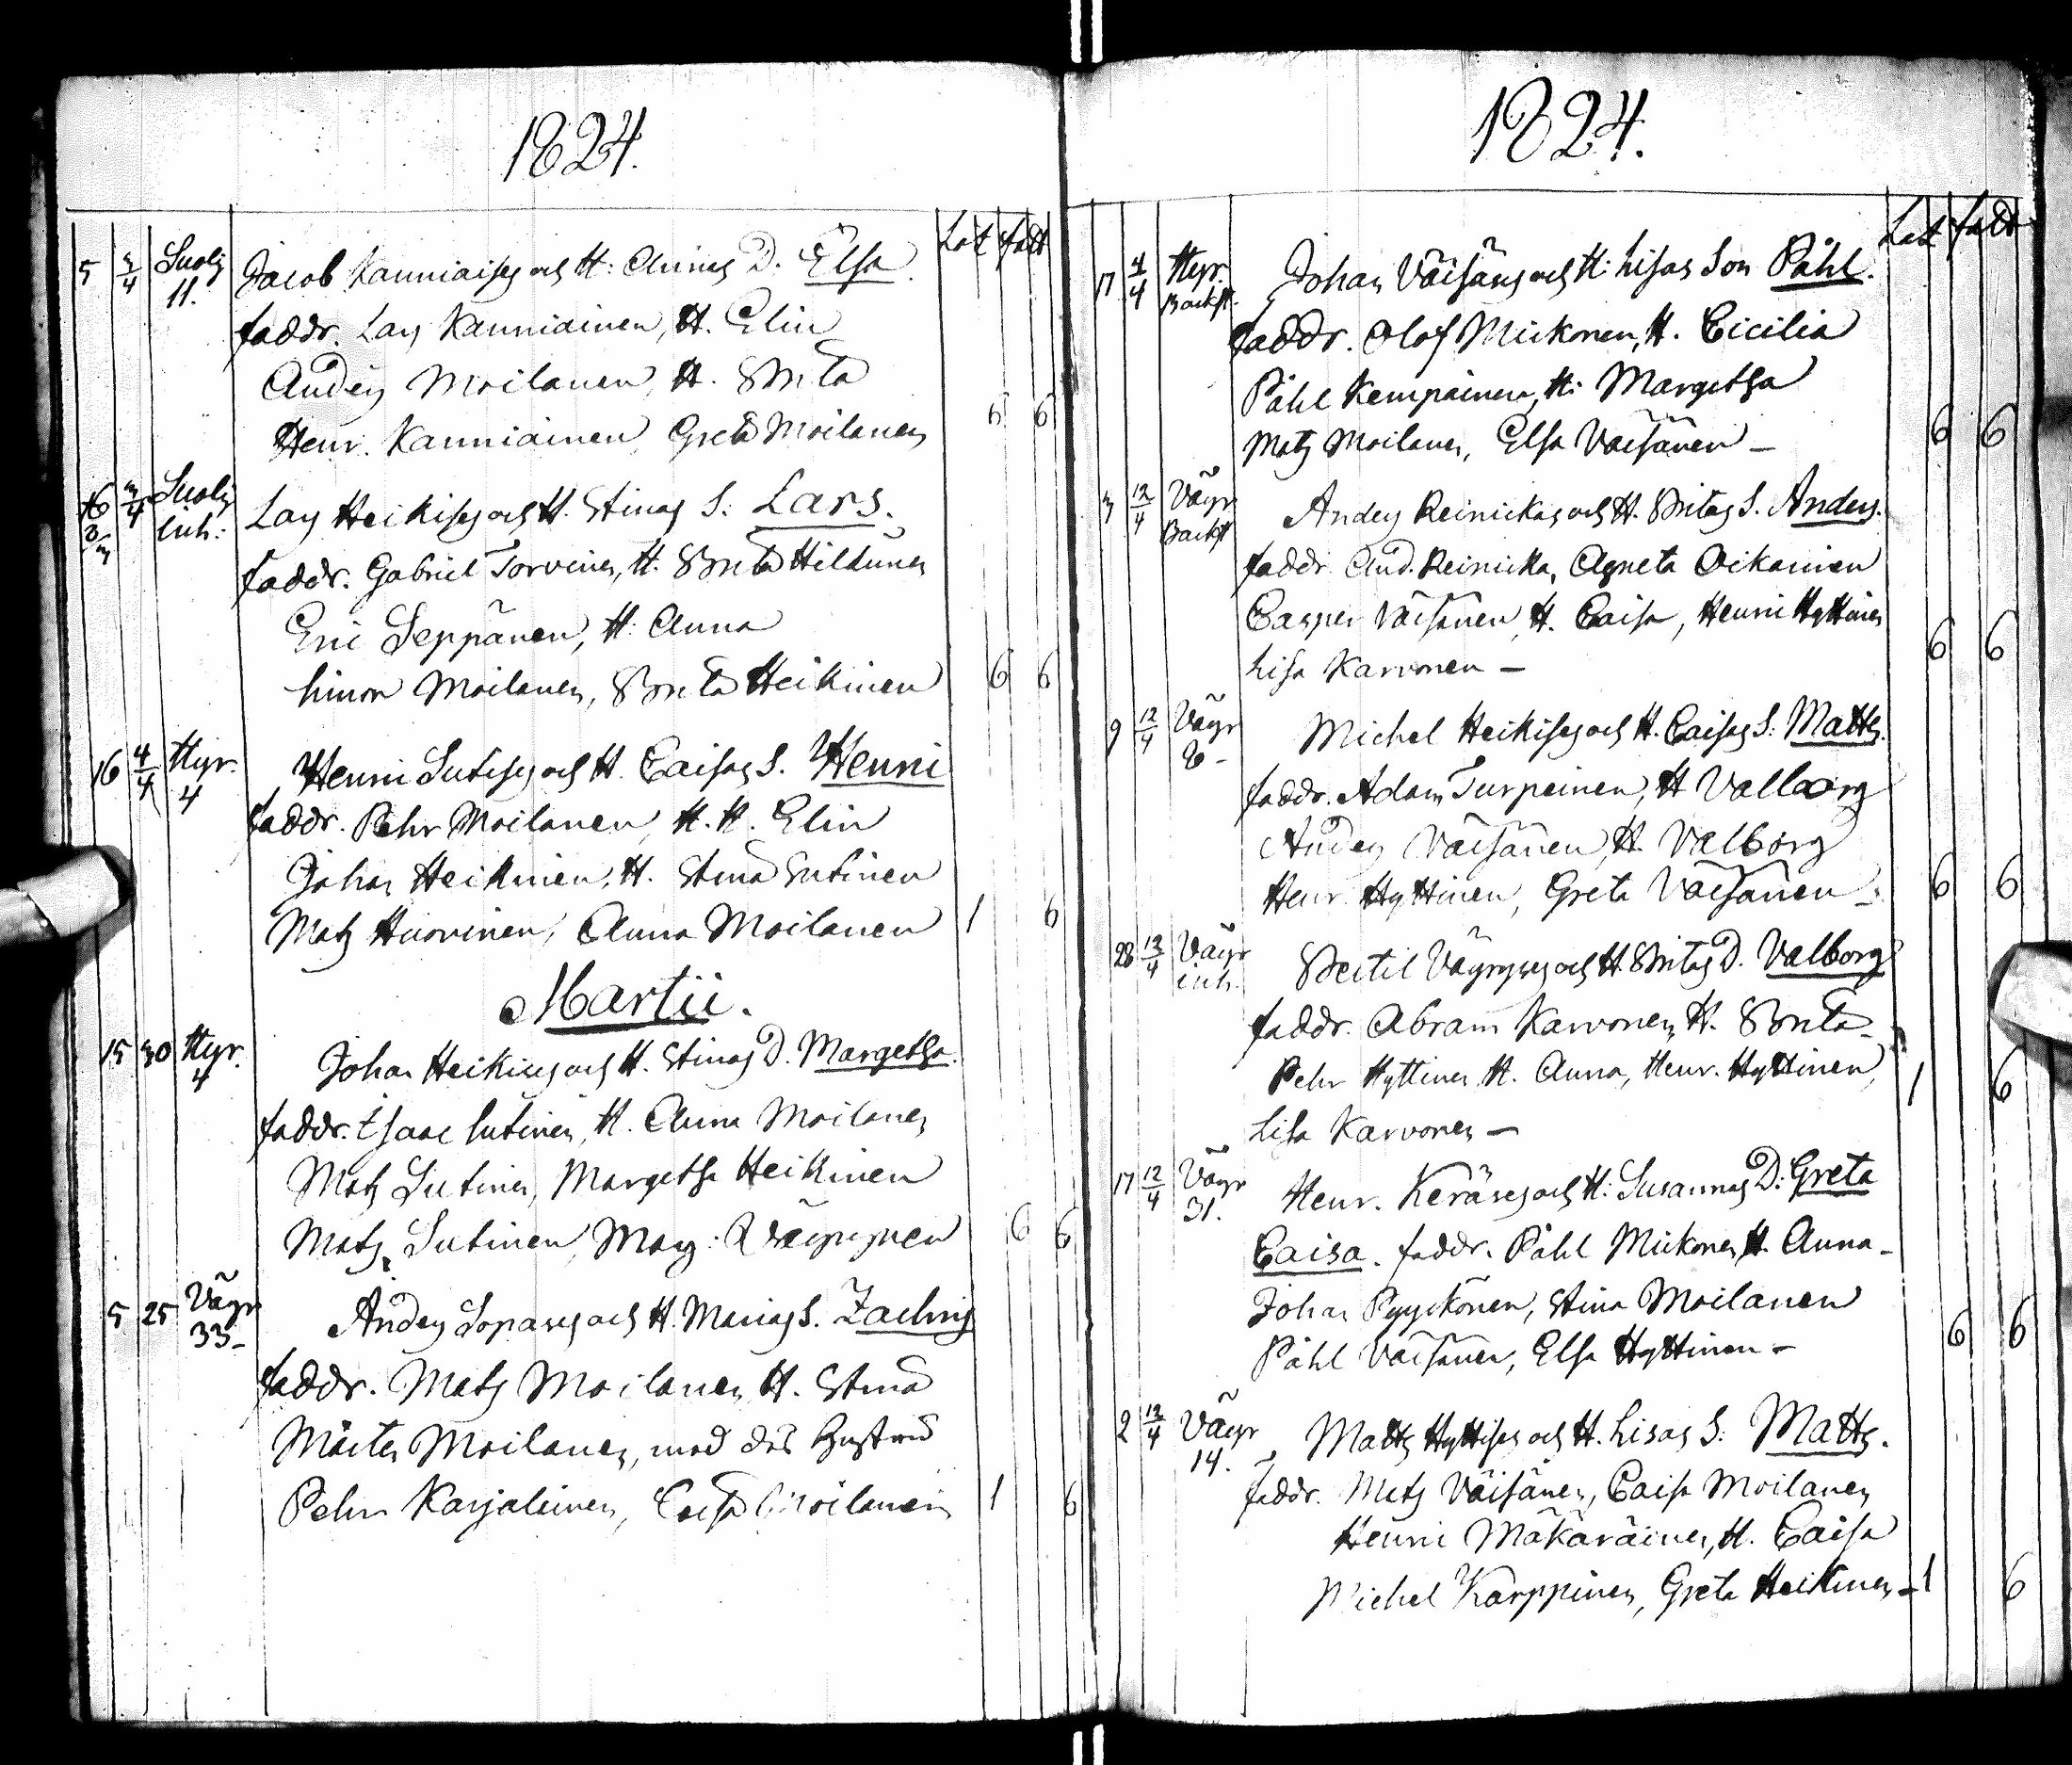 1824.
Lat fadd
5 3/4 Suolij Jacob Kanniaises och H: Annas D. Elsa.
11.
faddr. Lars Kanniainen, H. Elin
Anders Moilanen, H. Brita
Henr. Kanniainen, Greta Moilanen 6 6
3/4 Suolij Lars Heikises och H. Stinas S: Lars.
inh:
faddr. Gabriel Torvinen, H. Brita Hildunen
Eric Seppänen, H: Anna
Simon Moilanen, Brita Heikinen 6 6
16 4/4 Hyr. Henric Sutises och H. Caisas S. Henric
4
faddr. Pehr Moilanen, H. H. Elin
Johan Heikinen, H. Stina Sutinen
Mats Huovinen, Anna Moilanen 1 6
Martii.
15 30 Hyr. Johan Heikises och H. Stinas D. Margetha.
4
faddr. Isaac Sutinen, H. Anna Moilanen
Mats Sutinen, Margetha Heikinen
Mats Sutinen, Marg: Väyrynen 6 6
5 25 Väyr Anders Sopases och H. Marias S. Zachris
33-
faddr. Mats Moilanen, H. Stina
Mårten Moilanen, med dess hustru
Pehr Karjalainen, Caisa Moilanen 1 6
1824.
Lat fadd
17 4/4 Hyr. Johan Väisäns och H: Lisas Son Påhl.
Backst.
faddr. Olof Mickonen, H. Cicilia
Påhl Kempainen, H: Margetha
Mats Moilanen, Elsa Väisänen - 6 6
3 12/4 Väyr Anders Reinickas och H. Britas S. Anders.
Backst
faddr. And. Reinicka, Agneta Oikarinen
Casper Väisänen, H. Caisa, Henric Hyttinen
Lisa Karvonen - 6 6
9 12/4 Väyr Michel Heikises och H. Caisas S: Matts.
8-
faddr. Adam Turpeinen, H Valborg
Anders Väisänen, H. Valborg
Henr. Hyttinen, Greta Väisänen - 6 6
28 13/4 Väyr Bertil Väyryses och H. Britas D. Valborg
inh.
faddr. Abram Karvonen, H. Brita -
Pehr Hyttinen, H. Anna, Henr. Hyttinen, 1 6
Lisa Karvonen -
17 12/4 Väyr Henr. Keräses och H: Susannas D: Greta
31.
Caisa. faddr. Påhl Mickonen, H. Anna -
Johan Pyykönen, Stina Moilanen
Påhl Väisänen, Elsa Hyttinen - 6 6
2 12/4 Väyr Matts Hyttises och H. Lisas S: Matts.
14.
faddr. Mats Väisänen, Caisa Moilanen
Henric Mäkäräinen, H. Caisa
Michel Karppinen, Greta Heikinen - 1 6